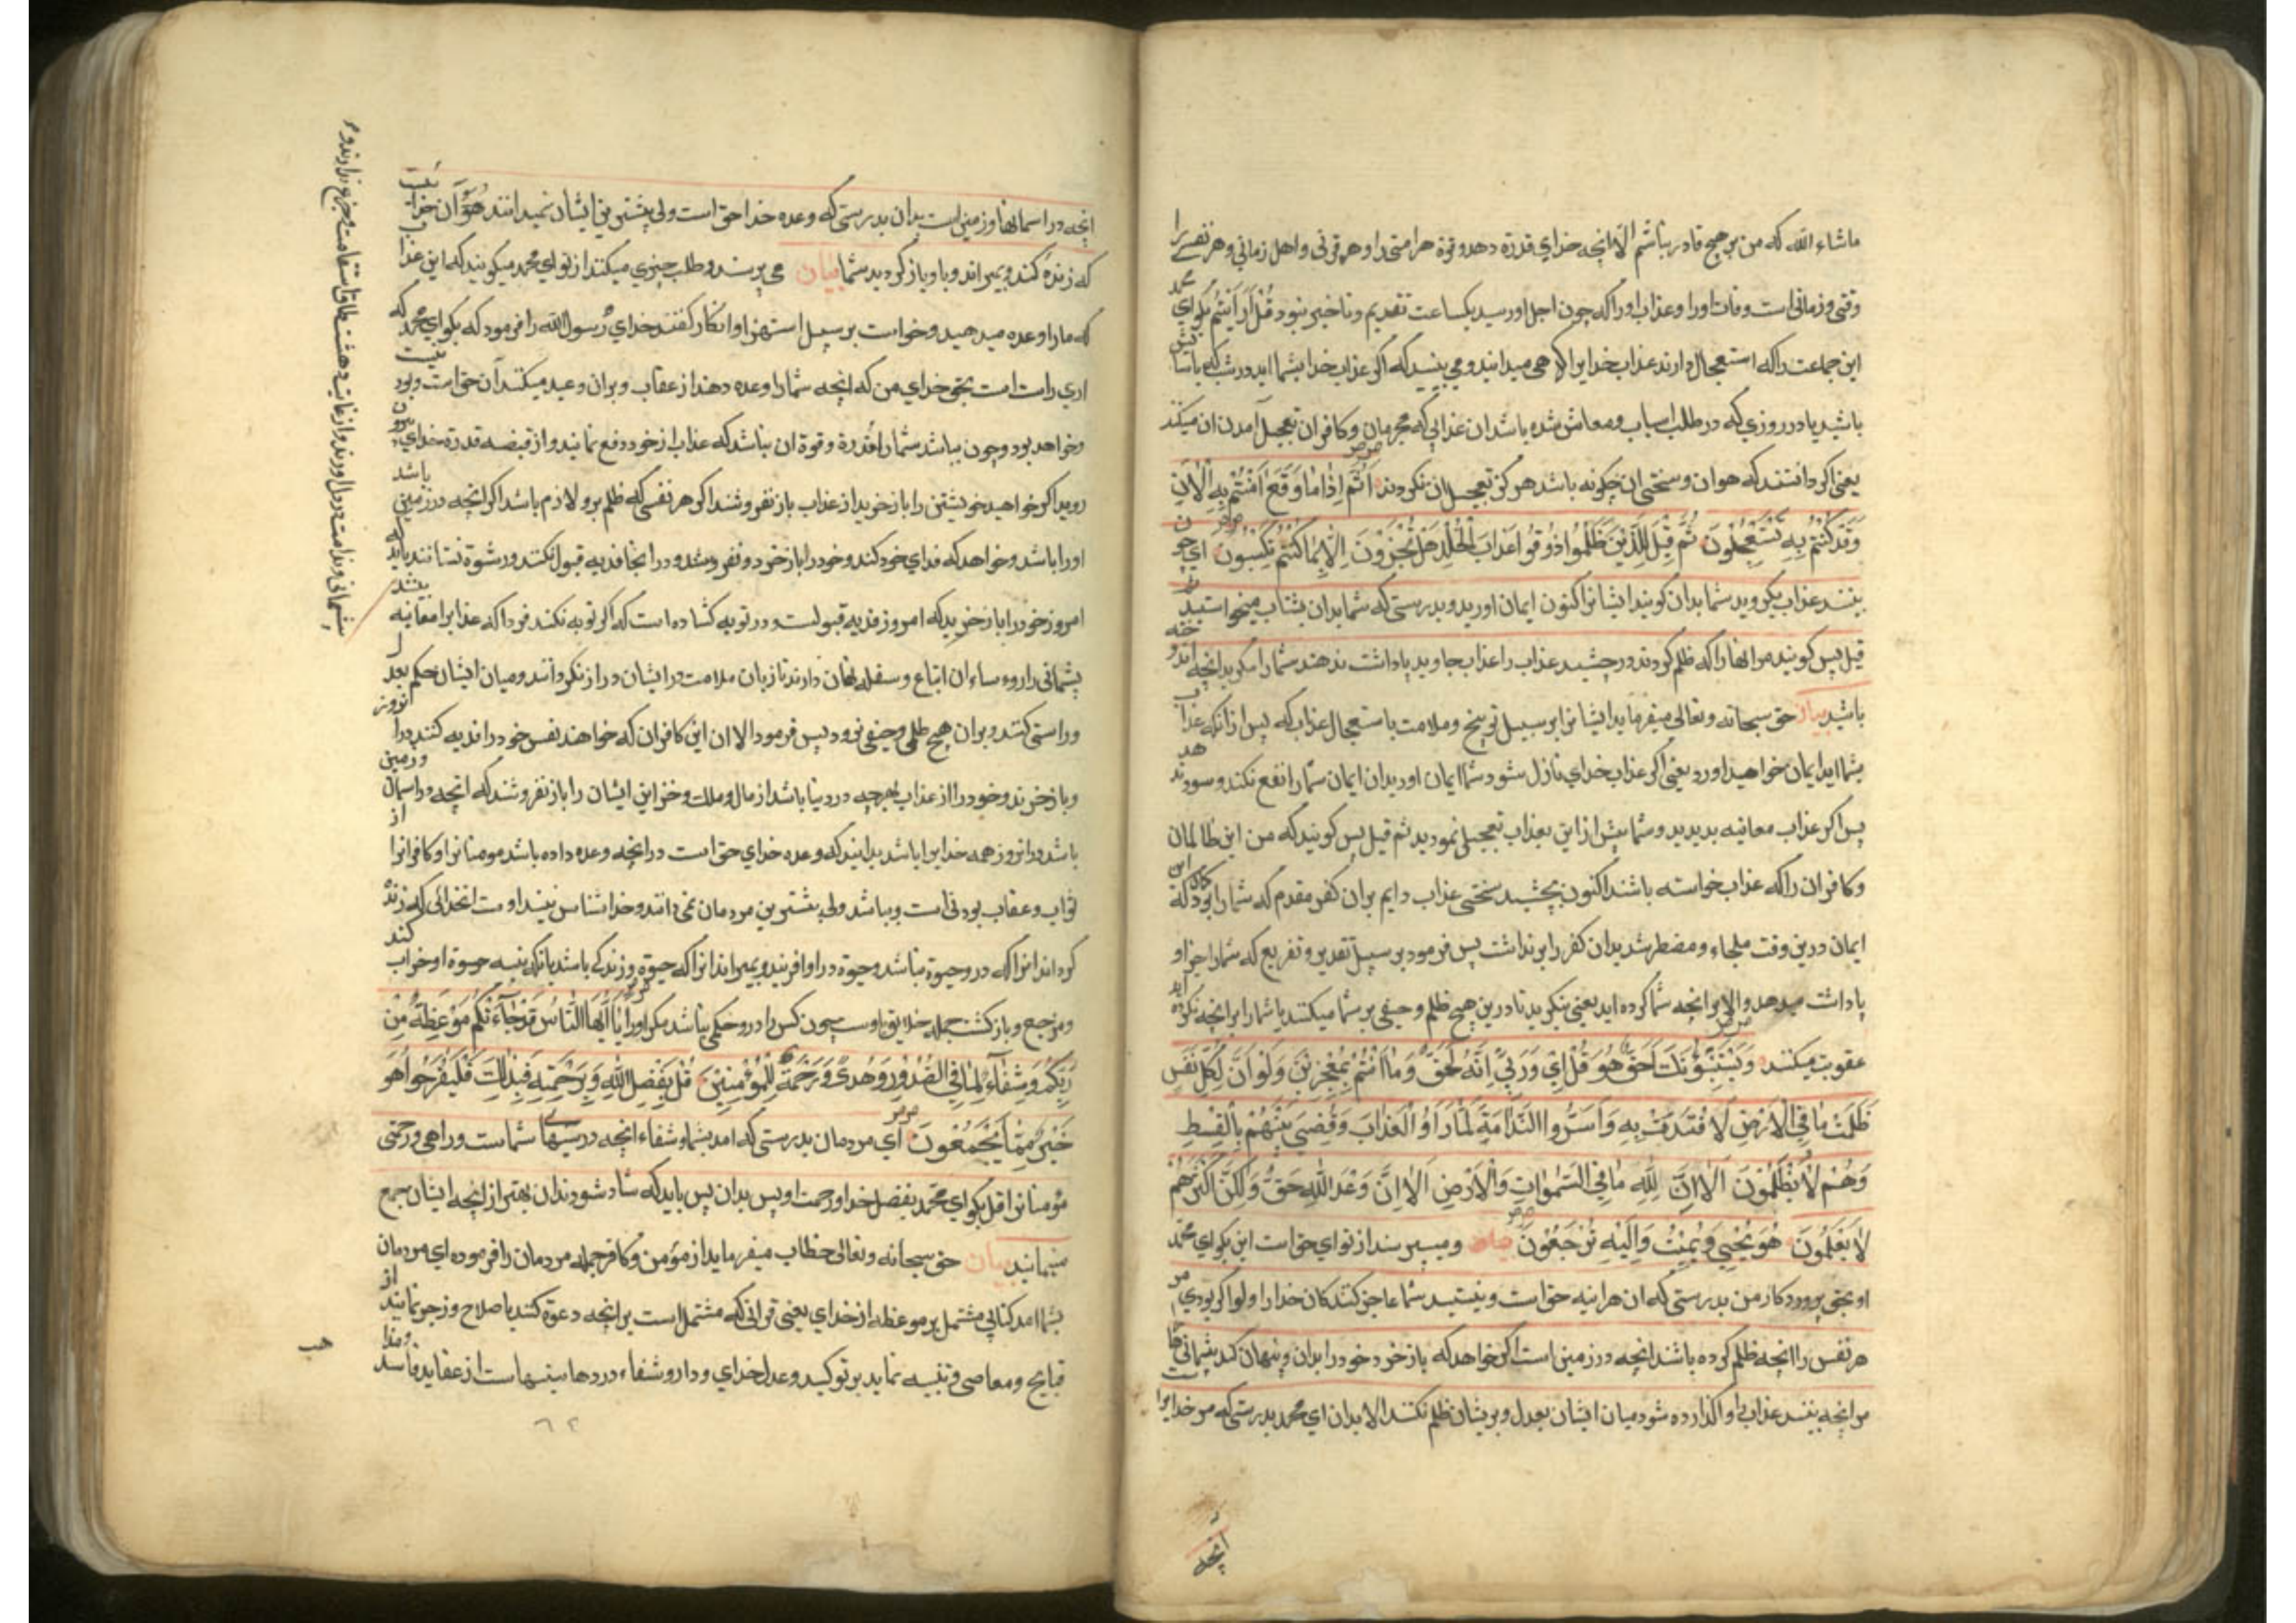 ماشاء الله که من بر هیچ قادر نباشم الا انچه خدای قدرة دهد و قوة هر امتی را و هر قرنی و اهل زمانی و هر نفسے را
وقتی و زمانی است وفات اورا و عذاب اورا که چون اجل اورسید یکساعت تقدیم و تاخیر نبود قُلْ اَرَاَیْتُمْ بکو ای محمد
این جماعت را که استعجال دارند عذاب خدایرا که می میدانید و می بینید که اکر عذاب خدا بشما اید در شب که
باشید یا در روزی که در طلب اسباب و معاش شده باشد ان عذابی که مجرمان و کافران تعجیل آمدن ان میکنند
یعنی اکر دانستند که هوان و سختی ان چکونه باشد هرکز تعجیل ان نکردند اَثُمَّ اِذٰا مٰا وَقَعَ اٰمَنْتُمْ بِهِ اٰلْاٰنَ
وَقَدْ کُنْتُمْ بِهِ تَسْتَعْجِلُونَ ثُمَّ قِیلَ لِلَّذِینَ ظَلَمُوا ذُوقُوا عَذٰابَ الْخُلْدِ هَلْ تُجْزَوْنَ اِلّٰا بِمٰا کُنْتُمْ تَکْسِبُونَ ای چون
بینند عذاب بکروید شما بدان کویند ایشانرا اکنون ایمان اورید و بدرستی که شما بدان بشتاب میخواستید
قیل پس کویند مر انها را که ظلم کردند در چشید عذاب را عذاب جاوید پاداشت ندهند شمارا مکر بدانچه
باشید بیان حق سبحانه و تعالی میفرماید ایشانرا بر سبیل توبیخ و ملامت باستعجال عذاب که پس از انکه عذاب
بشما اید ایمان خواهید اورد یعنی اکر عذاب خدای نازل شود شما ایمان اورید ان ایمان شمارا نفع نکند و سود ندهد
پس اکر عذاب معاینه بدیدید و شما پیش از این بعذاب تعجیل نمودید ثم قیل پس کویند که من این ظالمان
و کافران را که عذاب خواسته باشند اکنون بچشید سختی عذاب دایم بران کفر مقدم که شمارا بود که
ایمان درین وقت ملجاء و مضطر شد بدان کفر را بر نداشت پس فرمود بر سبیل تقدیر و تقریع که شمارا جزا و
پاداشت میدهد والا بر انچه شما کرده اید یعنی بنکرید تا درین هیچ ظلم و حیفی بر شما میکنند یا شمارا بر انچه نکرده اید
عقوبت میکنند وَ یَسْتَنْبِؤُنَکَ اَحَقٌّ هُوَ قُلْ اِی وَ رَبِّی اِنَّهُ لَحَقٌّ وَ مٰا اَنْتُمْ بِمُعْجِزِینَ وَ لَوْ اَنَّ لِکُلِّ نَفْسٍ
ظَلَمَتْ مٰا فِی الْاَرْضِ لَافْتَدَتْ بِهِ وَ اَسَرُّوا النَّدٰامَةَ لَمّٰا رَاَوُا الْعَذٰابَ وَ قُضِیَ بَیْنَهُمْ بِالْقِسْطِ
وَ هُمْ لٰا یُظْلَمُونَ اَلٰا اِنَّ لِلّٰهِ مٰا فِی السَّمٰوٰاتِ وَ الْاَرْضِ اَلٰا اِنَّ وَعْدَ اللّٰهِ حَقٌّ وَ لٰکِنَّ اَکْثَرَهُمْ
لٰا یَعْلَمُونَ هُوَ یُحْیِی وَ یُمِیتُ وَ اِلَیْهِ تُرْجَعُونَ و میپرسند از تو ای حق است این بکو ای محمد
او بحق پروردکار من بدرستی که ان هراینه حق است و نیستید شما عاجز کنندکان خدا را ولو اکر بودی مر
هر نفس را انچه ظلم کرده باشند انچه در زمین است اکر خواهد که باز خرد خود را بدان و پنهان کند پشمانی
مر انچه بینند عذاب او کذارده شود میان ایشان بعدل و بریشان ظلم نکنند الا بدان ای محمد بدرستی که مر خدایرا
انچه
انچه در اسمانها و زمین است بدان بدرستی که وعده خدا حق است ولی بیشترین ایشان نمیدانند هُوَ آن خدا
که زنده کند و بمیراند و باو باز کردید شما بیان می پرسند و طلب چیزی میکنند از تو ای محمد میکویند که این عذاب
که مارا وعده میدهید و خواست بر سبیل استهزا و انکار کفتند خدای رسول الله را فرمود که بکو ای محمد که
اری راست است بحق خدای من که انچه شمارا وعده دهند از عقاب و بران وعید میکنند آن حق است و بود
و خواهد بود و چون نباشد شمارا قدرة و قوة ان نباشد که عذاب از خود دفع نمایید و از قبضه قدرة خدای بیرون
روید اکر خواهید خویشتن را باز خرید از عذاب باز نفروشند اکر هر نفسی که ظلم برو لازم باشد اکر انچه در زمین باشد
اورا باشد و خواهد که فدای خود کند و خود را باز خرد و نفروشند و در انجا فدیه قبول نکنند و رشوة نستانند باید که
امروز خود را باز خرید که امروز فدیه قبولست و در توبه کشاده است که اکر توبه نکند فردا که عذابرا معاینه بینند
پشمانی دارو رؤساء ان اتباع و سفله نهان دارند تا زبان ملامت در ایشان دراز نکردانند و میان ایشان حکم بعدل
و راستی کنند و بران هیچ ظلمی و حیفی نرود پس فرمود الا ان این کافران که خواهند نفس خود را فدیه کنند دران روز
و باز خرند و خود را از عذاب بهرچه در دنیا باشد از مال و ملک و خزاین ایشان را باز نفروشند که انچه در اسمان و زمین
باشد دران روز همه خدایرا باشد بدانید که وعده خدای حق است در انچه وعده داده باشد مومنانرا و کافرانرا از
ثواب و عقاب بودنی است و بباشد ولی بیشترین مردمان نمی دانند و خدا شناس نیند اوست انخدائی که زنده
کرداند انرا که در و حیوة نباشد و حیوة در او افریند و بمیراند انرا که حیوة و زندکی باشد بانکه بنیه حیوة او خراب کند
و مرجع و بازکشت جمله خلایق باوست چون کس را در و حکمی نباشد مکر اورا یٰا اَیُّهَا النّٰاسُ قَدْ جٰآءَتْکُمْ مَوْعِظَةٌ مِنْ
رَبِّکُمْ وَ شِفٰآءٌ لِمٰا فِی الصُّدُورِ وَ هُدًی وَ رَحْمَةٌ لِلْمُؤْمِنِینَ قُلْ بِفَضْلِ اللّٰهِ وَ بِرَحْمَتِهِ فَبِذٰلِکَ فَلْیَفْرَحُوا هُوَ
خَیْرٌ مِمّٰا یَجْمَعُونَ ای مردمان بدرستی که امد بشما و شفاء انچه در سینهاے شماست و راهی و رحمتی
مؤمنانرا قل بکو ای محمد بفضل خدا و رحمت او پس بدان پس باید که شاد شوند ان بهتر از انچه ایشان جمع
مینمانید بیان حق سبحانه و تعالی خطاب میفرماید از مؤمن و کافر جمله مردمان را فرموده ای مردمان
بشما امد کتابی مشتمل بر موعظه از خدای یعنی قرانی که مشتمل است بر انچه دعوة کنند باصلاح و زجر نمایند از
قبایح و معاصی و تنبیه نماید بر توکید و عدل خدای و دارو شفاء دردها سینهاست از عقاید فاسد
٦٢